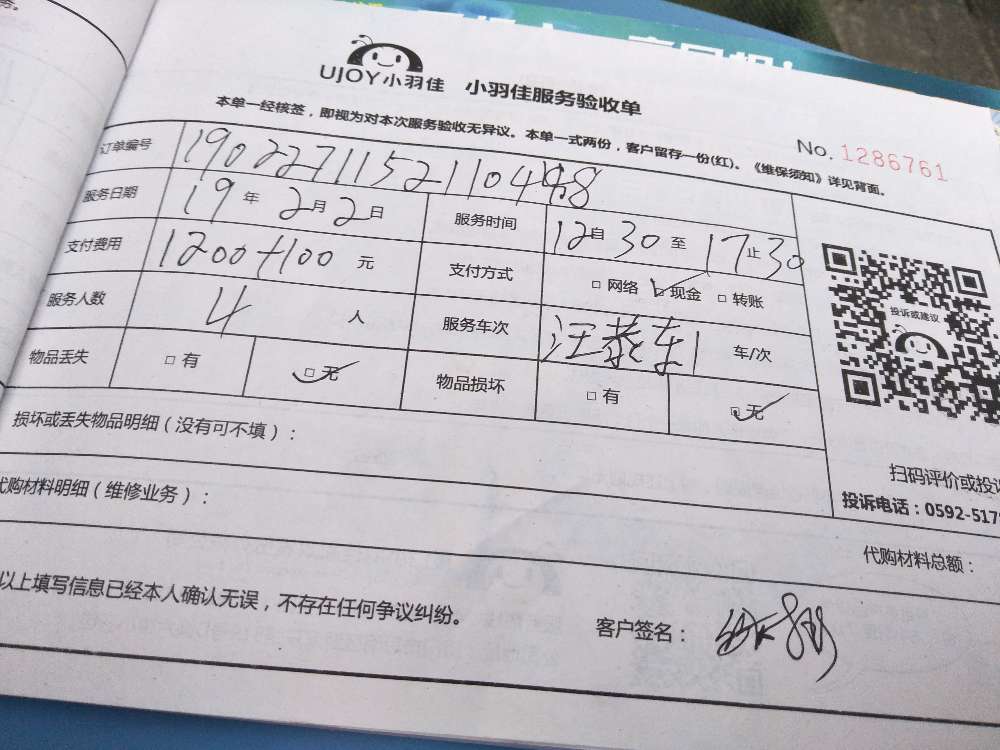 务。
UJOY小羽佳 小羽佳服务验收单
本单一经核签，即视为对本次服务验收无异议。本单一式两份，客户留存一份(红)。《维保须知》详见背面。
No. 1286761
订单编号
服务日期 19 年 2 月 2 日 服务时间 12 自 30 至 17 止 30
支付费用 1200+100 元 支付方式 □ 网络 □ 现金 □ 转账
服务人数 4 人 服务车次 车/次
物品丢失 □ 有 □ 无 物品损坏 □ 有 □ 无
损坏或丢失物品明细（没有可不填）：
代购材料明细（维修业务）：
投诉或建议
扫码评价或投
投诉电话：0592-517
代购材料总额：
以上填写信息已经本人确认无误，不存在任何争议纠纷。
客户签名：